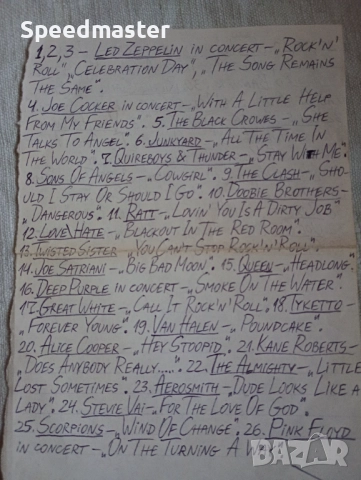 Speedmaster
1,2,3 - LED ZEPPELIN IN CONCERT - „ROCK'N'
ROLL", „CELEBRATION DAY", „THE SONG REMAINS
THE SAME".
4. JOE COCKER IN CONCERT - „WITH A LITTLE HELP
FROM MY FRIENDS". 5. THE BLACK CROWES - „SHE
TALKS TO ANGEL". 6. JUNKYARD - „ALL THE TIME IN
THE WORLD". 7. QUIREBOYS & THUNDER - „STAY WITH ME".
8. SONS OF ANGELS - „COWGIRL". 9. THE CLASH - „SHO-
ULD I STAY OR SHOULD I GO". 10. DOOBIE BROTHERS -
„DANGEROUS". 11. RATT - „LOVIN' YOU IS A DIRTY JOB"
12. LOVE/HATE - „BLACKOUT IN THE RED ROOM".
13. TWISTED SISTER - „YOU CAN'T STOP ROCK'N'ROLL".
14. JOE SATRIANI - „BIG BAD MOON". 15. QUEEN - „HEADLONG".
16. DEEP PURPLE IN CONCERT - „SMOKE ON THE WATER".
17. GREAT WHITE - „CALL IT ROCK'N'ROLL". 18. TYKETTO -
„FOREVER YOUNG". 19. VAN HALEN - „POUNDCAKE".
20. ALICE COOPER - „HEY STOOPID". 21. KANE ROBERTS -
„DOES ANYBODY REALLY.....". 22. THE ALMIGHTY - „LITTLE
LOST SOMETIMES". 23. AEROSMITH - „DUDE LOOKS LIKE A
LADY". 24. STEVIE VAI - „FOR THE LOVE OF GOD".
25. SCORPIONS - „WIND OF CHANGE". 26. PINK FLOYD
IN CONCERT - „ON THE TURNING A WAY".
BAZAR